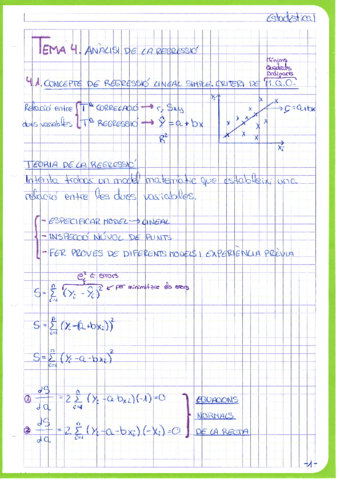 Estadística I
TEMA 4. ANÀLISI DE LA REGRESSIÓ
Mínims
Quadrats
Ordinaris
4.1. CONCEPTE DE REGRESSIÓ LINEAL SIMPLE. CRITERI DE M.Q.O.
Relació entre dues variables
Tª CORRELACIÓ → r, Sxy
Tª REGRESSIÓ → ŷ = a + bx
R²
yi
ŷ = a + bx
xi
TEORIA DE LA REGRESSIÓ
Intenta trobar un model matemàtic que estableixi una
relació entre les dues variables.
- ESPECIFICAR MODEL → LINEAL
- INSPECCIÓ NÚVOL DE PUNTS
- FER PROVES DE DIFERENTS MODELS I EXPERIÈNCIA PRÈVIA
eᵢ² = errors
S = Σⁿᵢ₌₁ (yᵢ - ŷᵢ)² per minimitzar els errors
S = Σⁿᵢ₌₁ (yᵢ - (a + bxᵢ))²
S = Σⁿᵢ₌₁ (yᵢ - a - bxᵢ)²
① ∂S/∂a = 2 Σⁿᵢ₌₁ (yᵢ - a - bxᵢ)(-1) = 0
② ∂S/∂a = 2 Σⁿᵢ₌₁ (yᵢ - a - bxᵢ)(-xᵢ) = 0
EQUACIONS
NORMALS
DE LA RECTA
-1-